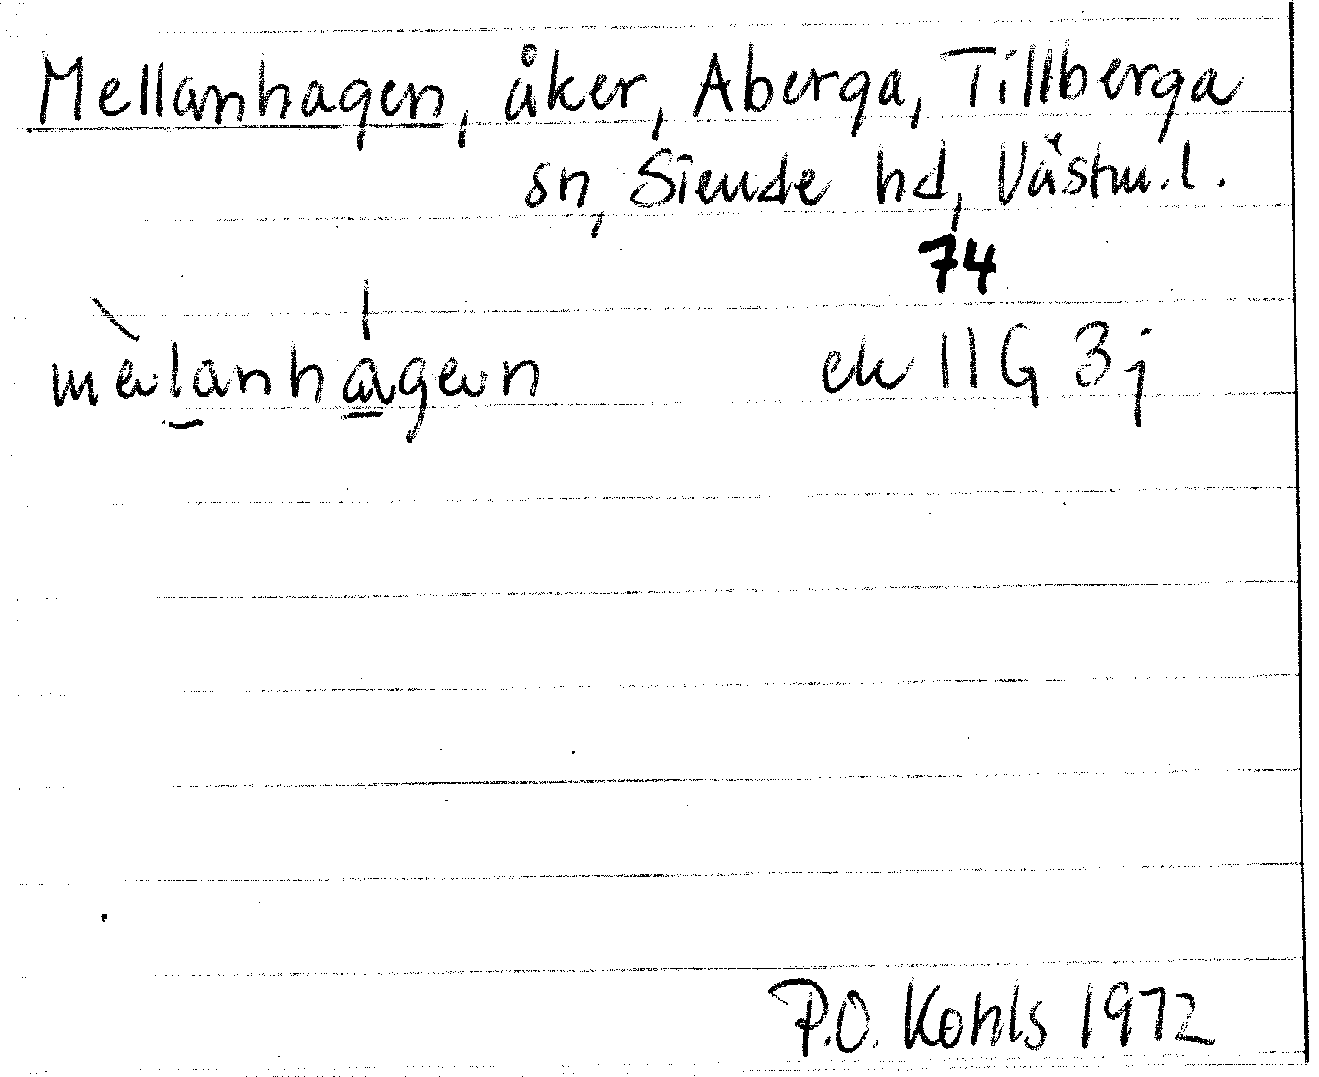 Mellanhagen, åker, Aberga, Tillberga
sn, Siende hd, Västm.l.
74
mèlanhágen ek 11G 3j
P.O. Kohls 1972